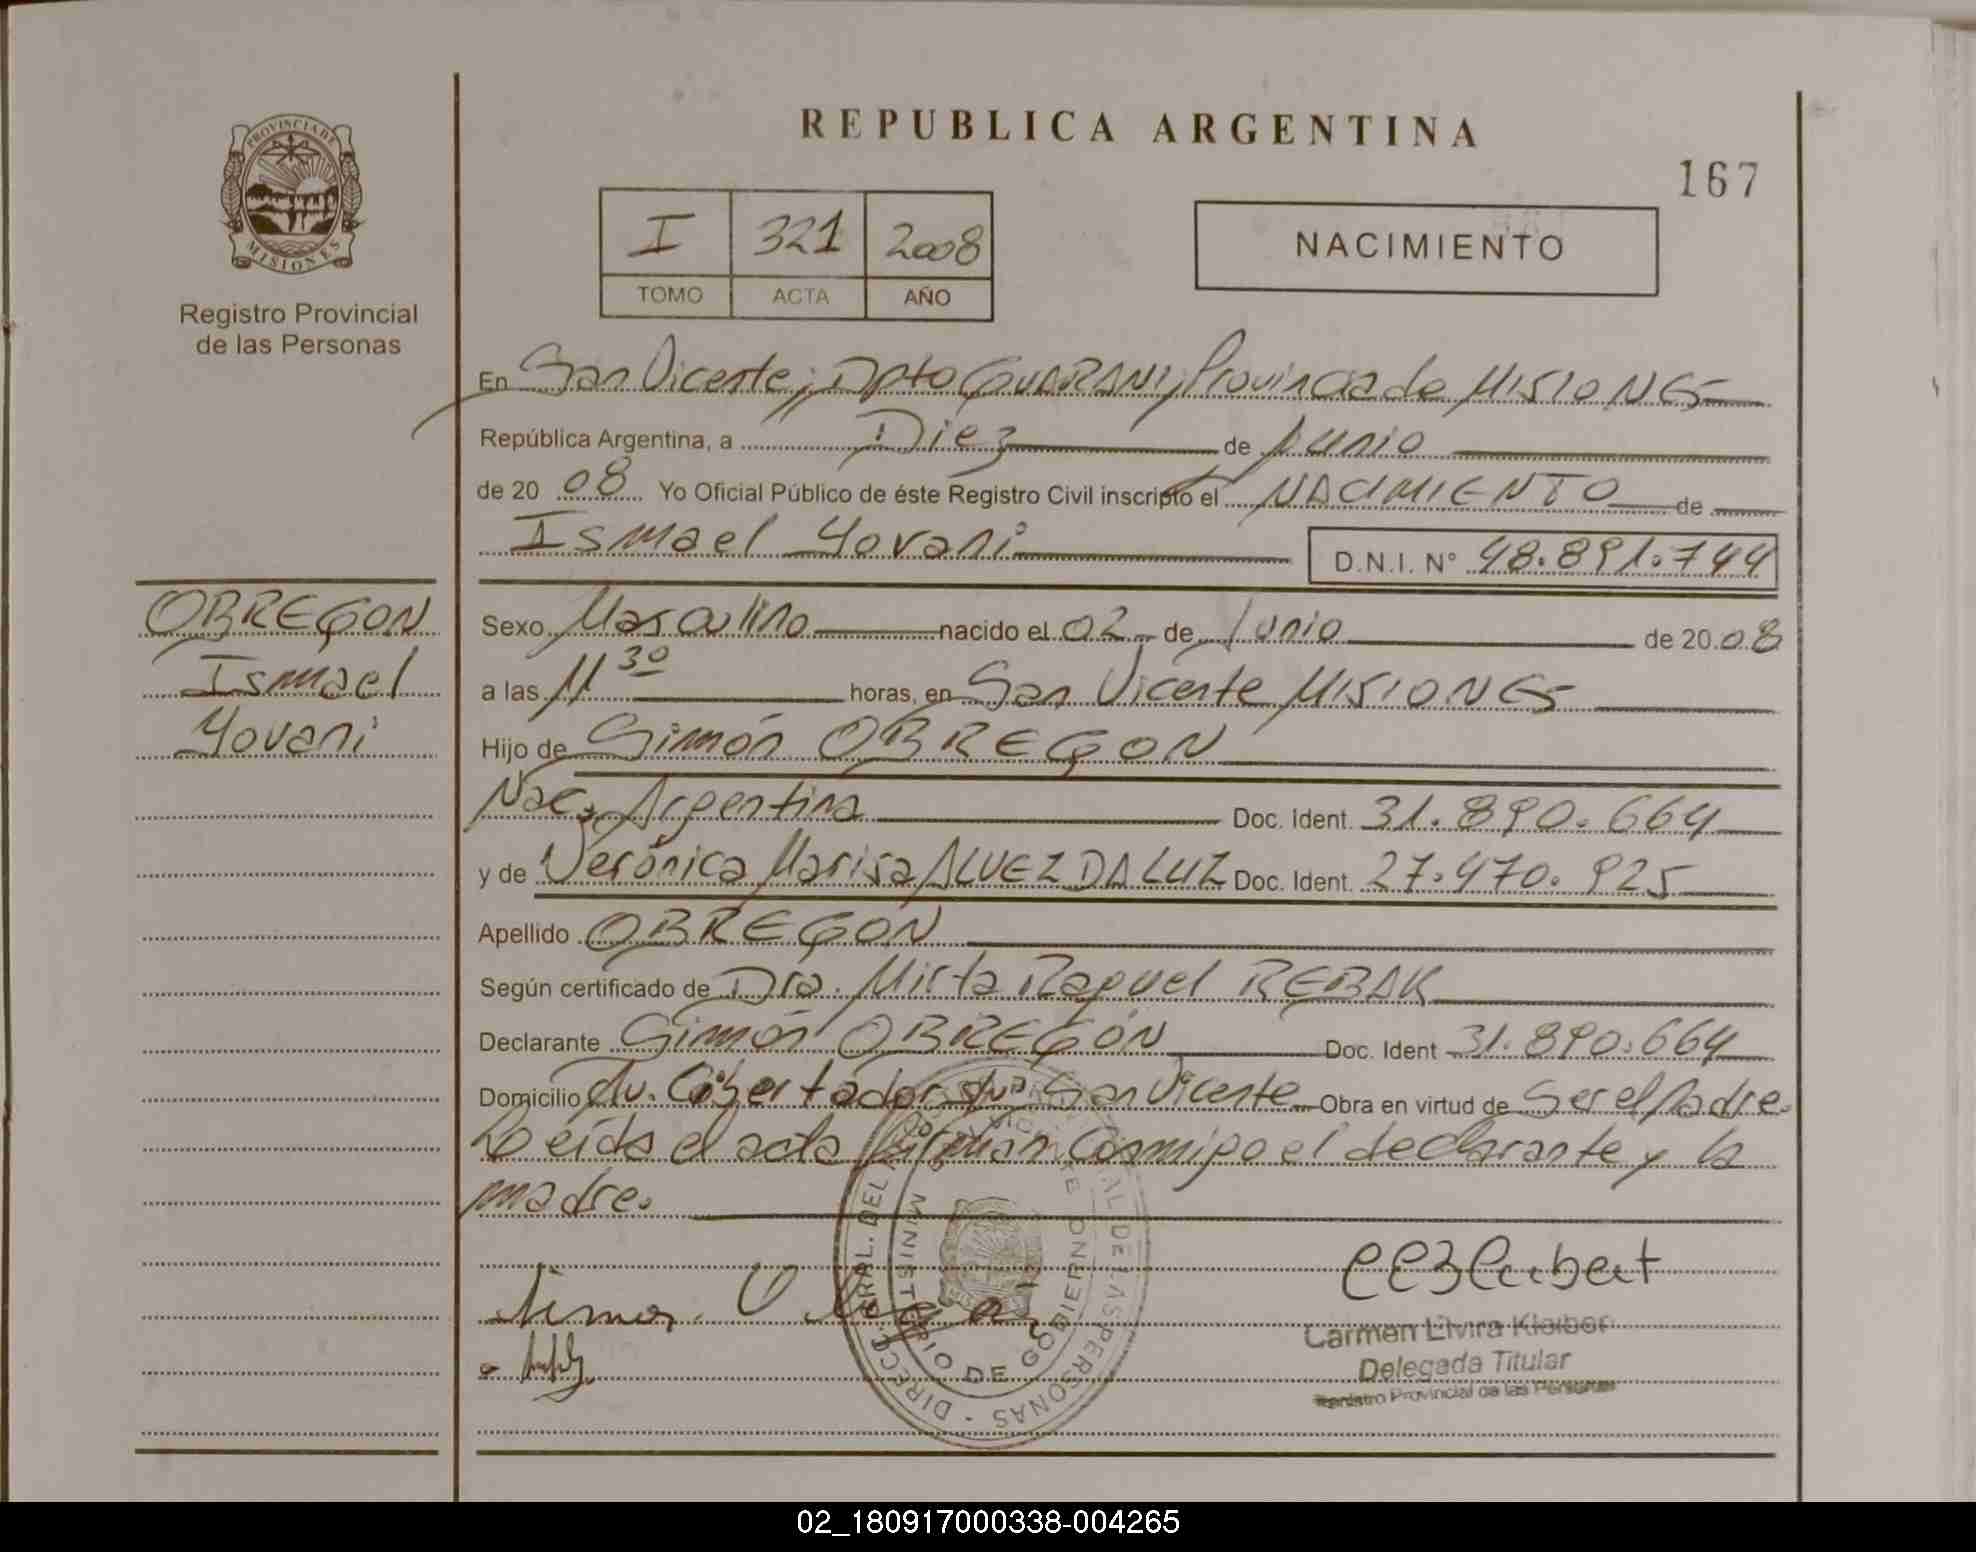 PROVINCIA DE
MISIONES
Registro Provincial
de las Personas
REPUBLICA ARGENTINA
167
I 321 2008
TOMO ACTA AÑO
NACIMIENTO
En San Vicente, Dpto GUARANI, Provincia de MISIONES
República Argentina, a Diez de Junio
de 20 08 Yo Oficial Público de éste Registro Civil inscripto el NACIMIENTO de
Ismael Yovani D.N.I. N° 48.891.744
OBREGON
Ismael
Yovani
Sexo Masculino nacido el 02 de Junio de 20 08
a las 11 30 horas, en San Vicente MISIONES
Hijo de Simón OBREGON
Nac. Argentina Doc. Ident. 31.890.664
y de Verónica Marisa ALVEZ DA LUZ Doc. Ident. 27.470.925
Apellido OBREGON
Según certificado de Dra. Mirta Raquel REBAK
Declarante Simón OBREGÓN Doc. Ident 31.890.664
Domicilio Av. Libertador s/n° San Vicente Obra en virtud de Ser el Padre.
Leída el acta firman conmigo el declarante y la
madre.
DIRECC. GRAL. DEL DE LAS PERSONAS
MINISTERIO DE GOBIERNO
Simon
Carmen Elvira Kleiber
Delegada Titular
Registro Provincial de las Personas
02_180917000338-004265